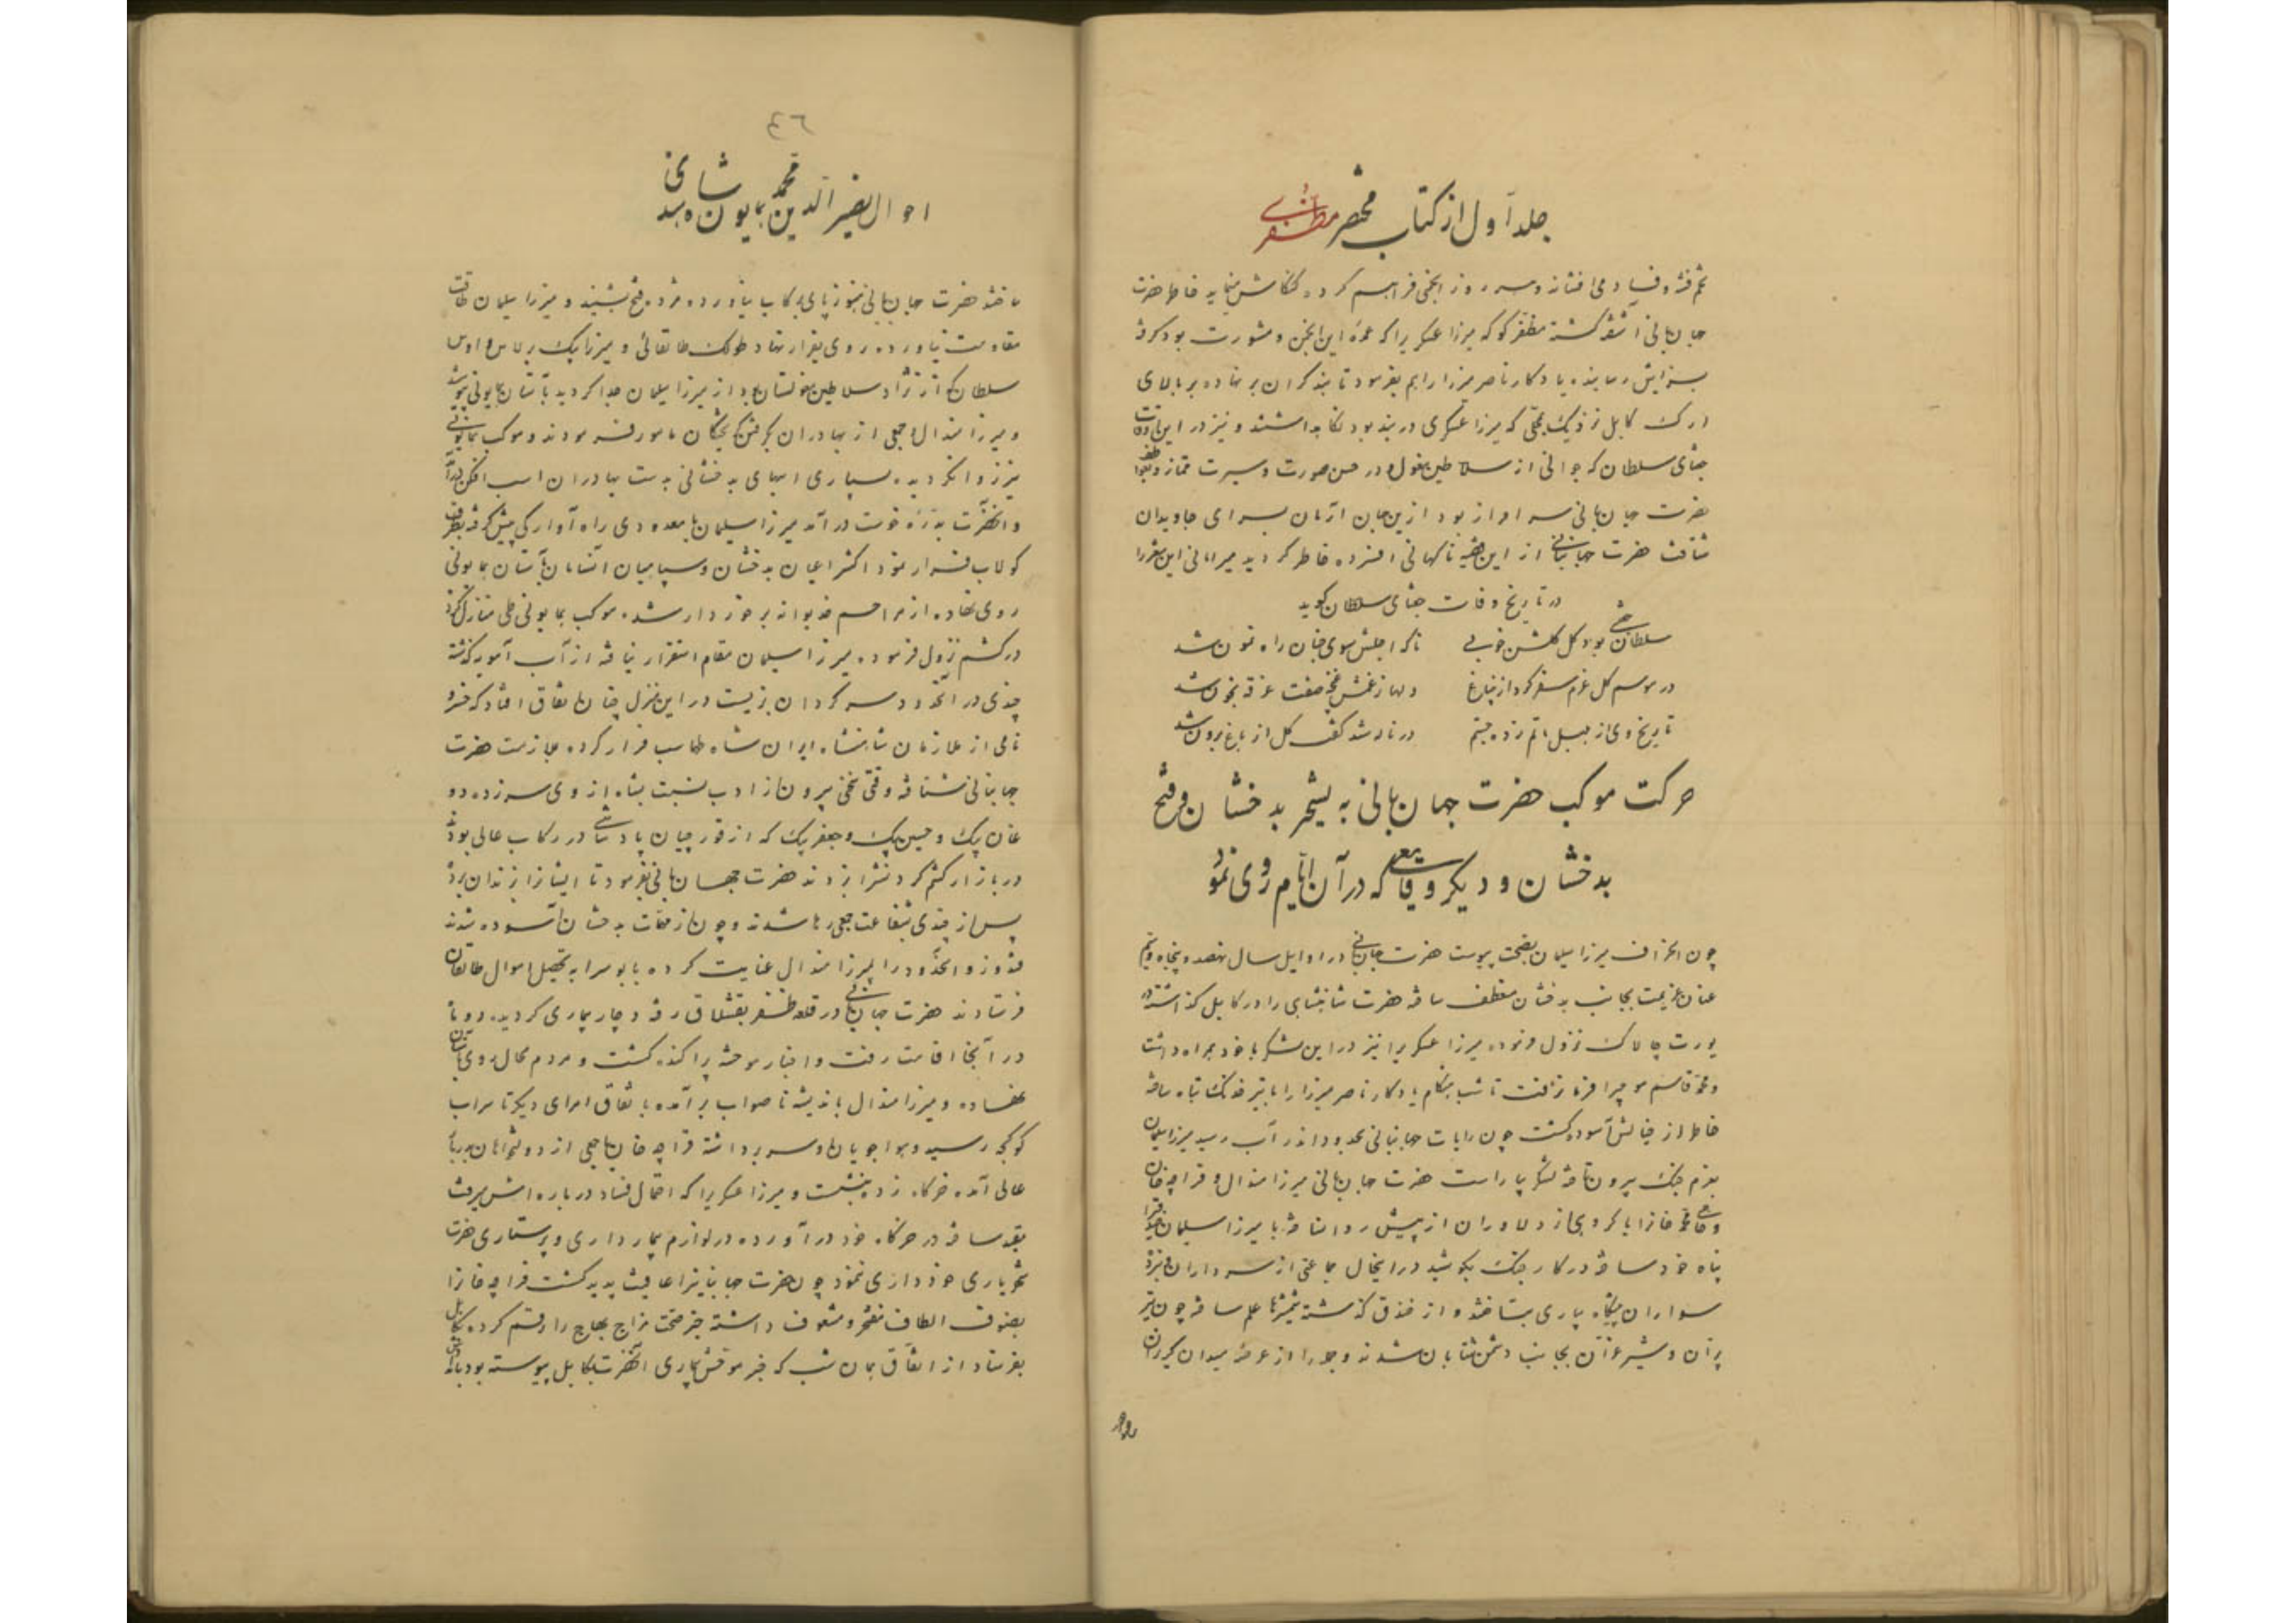 جلد اول از کتاب مختصر مظفری
تخم فتنه و فساد می افشاند و هر روز انجمنی فراهم کرده کنکاش مینماید خاطر حضرت
جهانبانی آشفته گشته مظفر کوکه میرزا عسکریرا که عمده این انجمن و مشورت بود گرفته
بسزایش رساینده یادکار ناصر میرزا را هم بفرمود تا بند گران بر نهاده بر بالای
ارک کابل نزدیک محلی که میرزا عسکری در بند بود نگاهداشتند و نیز در این اوقات
سلطان که جوانی از سلاطین مغول و در حسن صورت و سیرت ممتاز و
حضرت جهانبانی سرافراز بود ازین جهان گذران بسرای جاویدان
شتافت حضرت جهانبانی از این قضیه ناگهانی افسرده خاطر گردید میر امانی این را
در تاریخ وفات سلطان گوید
سلطان بود گل گلشن خوبی ناگه اجلش سوی جنان راه نمون شد
در موسم گل عزم سفر کرد ازین باغ دلها ز غمش غنچه صفت غرقه بخون شد
تاریخ وی از بلبل ماتم زده جستم در ناله شد گفت گل از باغ برون شد
حرکت موکب حضرت جهانبانی به تسخیر بدخشان و فتح
بدخشان و دیگر وقایعی که در آن ایام روی نمود
چون انحراف میرزا سلیمان بصحت پیوست حضرت جهانبانی در اوایل سال نهصد و پنجاه و
عنان عزیمت بجانب بدخشان منعطف ساخته حضرت شاهنشاهی را در کابل گذاشته در
یورت چالاک نزول فرموده میرزا عسکریرا نیز در این لشکر با خود همراه داشت
و محمد قاسم موجیرا فرمان رفت تا شب هنگام یادکار ناصر میرزا را تباه ساخته
خاطر از خیالش آسوده گشت چون رایات جهانبانی بحدود اندرآب رسید میرزا سلیمان
بعزم جنگ بیرون تاخته لشکر بیاراست حضرت جهانبانی میرزا هندال و قراچه خان
و محمد خانرا با گروهی از دلاوران از پیش روان ساخته با میرزا سلیمان
پناه خود ساخته در کار جنگ بکوشید در اینحال جماعتی از سرداران و نیز
سواران یکه یاری بتاختند و از خندق گذشته شمشیرها علم ساخته چون تیر
پران و شیر غران بجانب دشمن شتابان شدند و عدو را از عرصه میدان گریزان
٤٦
احوال نصیرالدین محمد همایون شاه هندی
ساختند حضرت جهانبانی هنوز پای برکاب نیاورده مژده فتح بشنید و میرزا سلیمان طاقت
مقاومت نیاورده روی بفرار نهاد طولک طالقانی و میرزا بیک برلاس و اویس
سلطان که از نژاد سلاطین مغولستان بود از میرزا سلیمان جدا گردید بآستان همایونی پیوستند
و میرزا هندال و جمعی از بهادران بگرفتن گریختگان مامور فرمودند و موکب همایونی
نیز روان گردید بسیاری اسبهای بدخشانی بدست بهادران اسب افکن درآمد
و آنحضرت بدره خوست درآمد میرزا سلیمان با معدودی راه آوارگی پیش گرفته بطرف
کولاب فرار نمود اکثر اعیان بدخشان و سپاهیان آنسامان بآستان همایونی
روی نهاده از مراحم خدیوانه برخوردار شدند موکب همایونی طی منازل کرده
در کشم نزول فرموده میرزا سلیمان مقام استقرار نیافته از آب آمویه گذشته
چندی در آنحدود سرگردان بزیست در این منزل چنان اتفاق افتاد که خسرو
نامی از ملازمان شاهنشاه ایران شاه طهماسب فرار کرده بملازمت حضرت
جهانبانی شتافته وقتی سخنی بیرون از ادب نسبت بشاه از وی سر زده
بیک و حسین بیک و جعفر بیک که از قورچیان پادشاهی در رکاب عالی بودند
در بازار کشم گردنش را بزدند حضرت جهانبانی بفرمود تا ایشانرا بزندان بردند
پس از چندی بشفاعت جمعی رها شدند و چون از مهمات بدخشان آسوده شدند
قندوز و آنحدود را بمیرزا هندال عنایت کرده بابوسرا به تحصیل اموال طالقان
فرستادند حضرت جهانبانی در قلعه ظفر بقشلاق رفته دچار بیماری گردیده دو ماه
در آنجا اقامت رفت و اخبار موحشه پراکنده گشت و مردم محال روی بآشوب
نهاده و میرزا هندال باندیشه ناصواب برآمده با اتفاق امرای دیگر تا سرآب
کوکچه رسید و هواجویان او سر برداشته قراچه خان با جمعی از دولتخواهان بدربار
عالی آمده خرگاه زده بنشست و میرزا عسکریرا که احتمال فساد درباره‌اش میرفت
بقید ساخته در خرگاه خود درآورده در لوازم بیمارداری و پرستاری حضرت
شهریاری خودداری ننمود چون حضرت جهانبانیرا عافیت پدید گشت قراچه خانرا
بصنوف الطاف مفتخر و مشعوف داشته خبر صحت مزاج بهاج را رقم کرده بکابل
بفرستاد از اتفاق همان شب که خبر موحش بیماری آنحضرت بکابل پیوسته بود